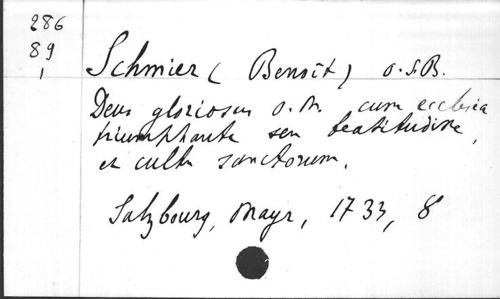 286
89
1
Schmier ( Benoît ) o.S.B.
Deus gloriosus o.M. cum ecclesia
triumphante seu beatitudine,
et cultu sanctorum.
Salzbourg, Mayr, 1733, 8°